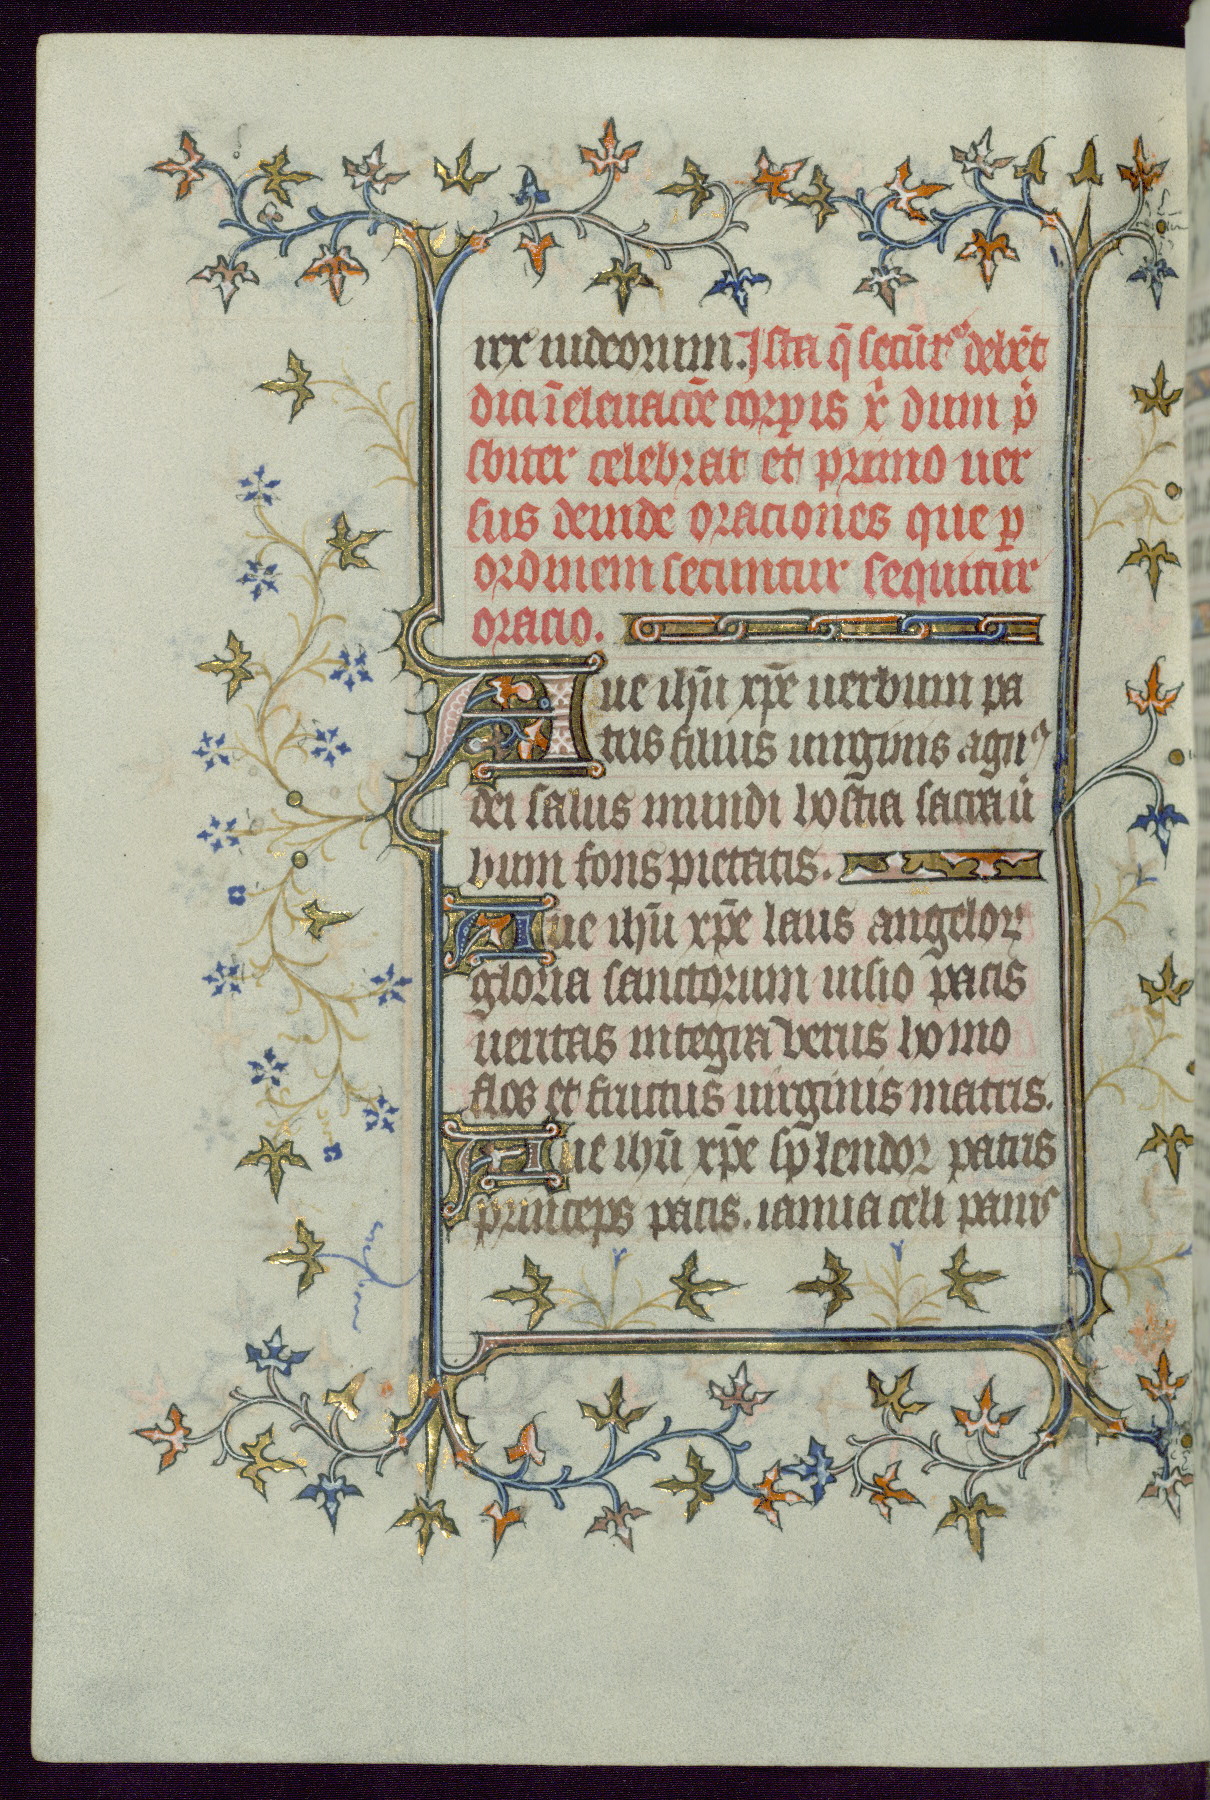 rex iudeorum. Ista q̄ secūt᷑ debēt
dici ī eleuacōe corꝑis xp̄i dum p̄
sbiter celebrat et primo uer
sus deinde orationes que ꝑ
ordinem secuntur sequitur
oracio.
Aue ihū xp̄e uerbum pa
tris filius uirginis agnꝰ
dei salus mundi hostia sacra ū
bum fons pietatis.
Aue ihū xp̄e laus angeloꝝ
gloria sanctorum uisio pacis
ueritas integra verus homo
flos et fructus uirginis matris.
Aue ihū xp̄e sp̄lendor patris
princeps pacis. ianua celi panis